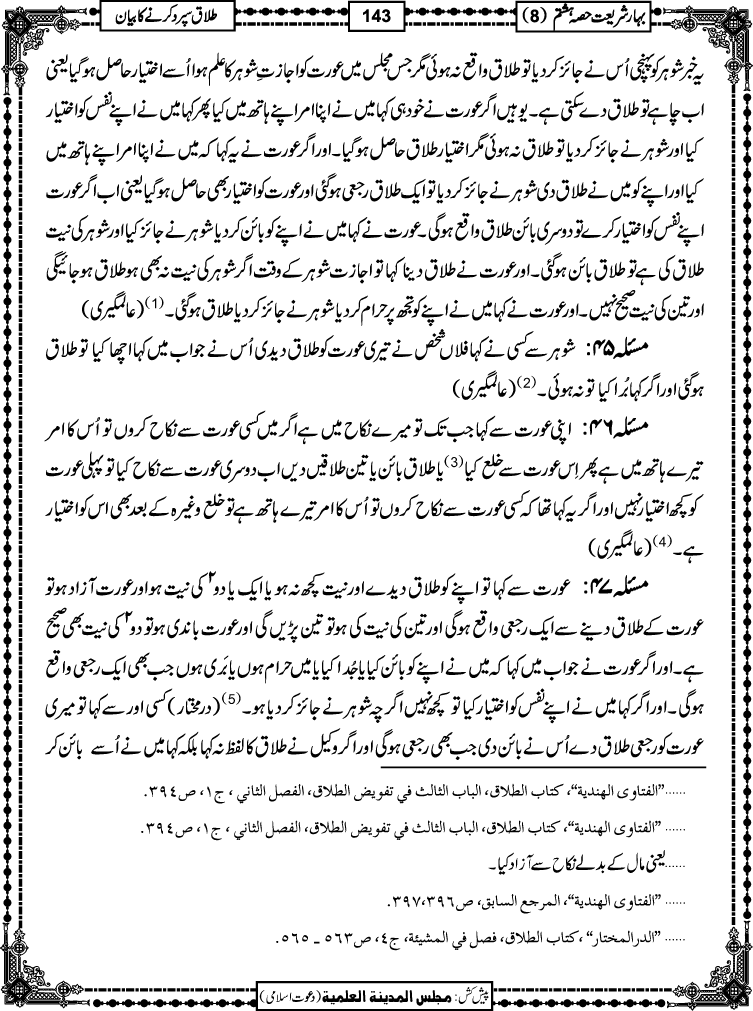 بہار شریعت حصہ ہشتم (8)
143
طلاق سپرد کرنے کا بیان
یہ خبر شوہر کو پہنچی اُس نے جائز کردیا تو طلاق واقع نہ ہوئی مگر جس مجلس میں عورت کو اجازتِ شوہر کا علم ہوا اُسے اختیار حاصل ہوگیا یعنی
اب چاہے تو طلاق دے سکتی ہے۔ یوہیں اگر عورت نے خود ہی کہا میں نے اپنا امر اپنے ہاتھ میں کیا پھر کہا میں نے اپنے نفس کو اختیار
کیا اور شوہر نے جائز کردیا تو طلاق نہ ہوئی مگر اختیار طلاق حاصل ہوگیا۔ اور اگر عورت نے یہ کہا کہ میں نے اپنا امر اپنے ہاتھ میں
کیا اور اپنے کو میں نے طلاق دی شوہر نے جائز کردیا تو ایک طلاق رجعی ہوگئی اور عورت کو اختیار بھی حاصل ہوگیا یعنی اب اگر عورت
اپنے نفس کو اختیار کرے تو دوسری بائن طلاق واقع ہوگی۔ عورت نے کہا میں نے اپنے کو بائن کردیا شوہر نے جائز کیا اور شوہر کی نیت
طلاق کی ہے تو طلاق بائن ہوگئی۔ اور عورت نے طلاق دینا کہا تو اجازت شوہر کے وقت اگر شوہر کی نیت نہ بھی ہو طلاق ہوجائیگی
اور تین کی نیت صحیح نہیں۔ اور عورت نے کہا میں نے اپنے کو تجھ پر حرام کردیا شوہر نے جائز کردیا طلاق ہوگئی۔(1) (عالمگیری)
مسئلہ ۴۵: شوہر سے کسی نے کہا فلاں شخص نے تیری عورت کو طلاق دیدی اُس نے جواب میں کہا اچھا کیا تو طلاق
ہوگئی اور اگر کہا بُرا کیا تو نہ ہوئی۔(2) (عالمگیری)
مسئلہ ۴۶: اپنی عورت سے کہا جب تک تو میرے نکاح میں ہے اگر میں کسی عورت سے نکاح کروں تو اُس کا امر
تیرے ہاتھ میں ہے پھر اِس عورت سے خلع کیا(3) یا طلاق بائن یا تین طلاقیں دیں اب دوسری عورت سے نکاح کیا تو پہلی عورت
کو کچھ اختیار نہیں اور اگر یہ کہا تھا کہ کسی عورت سے نکاح کروں تو اُس کا امر تیرے ہاتھ ہے تو خلع وغیرہ کے بعد بھی اس کو اختیار
ہے۔(4) (عالمگیری)
مسئلہ ۴۷: عورت سے کہا تو اپنے کو طلاق دیدے اور نیت کچھ نہ ہو یا ایک یا دو۲ کی نیت ہو اور عورت آزاد ہو تو
عورت کے طلاق دینے سے ایک رجعی واقع ہوگی اور تین کی نیت کی ہو تو تین پڑیں گی اور عورت باندی ہو تو دو۲ کی نیت بھی صحیح
ہے۔ اور اگر عورت نے جواب میں کہا کہ میں نے اپنے کو بائن کیا یا جُدا کیا یا میں حرام ہوں یا بَری ہوں جب بھی ایک رجعی واقع
ہوگی۔ اور اگر کہا میں نے اپنے نفس کو اختیار کیا تو کچھ نہیں اگرچہ شوہر نے جائز کردیا ہو۔(5) (درمختار) کسی اور سے کہا تو میری
عورت کو رجعی طلاق دے اُس نے بائن دی جب بھی رجعی ہوگی اور اگر وکیل نے طلاق کا لفظ نہ کہا بلکہ کہا میں نے اُسے بائن کر
...... "الفتاوى الهندية"، كتاب الطلاق، الباب الثالث في تفويض الطلاق، الفصل الثاني ، ج١، ص٣٩٤.
...... "الفتاوى الهندية"، كتاب الطلاق، الباب الثالث في تفويض الطلاق، الفصل الثاني ، ج١، ص٣٩٤.
......یعنی مال کے بدلے نکاح سے آزاد کیا۔
...... "الفتاوى الهندية"، المرجع السابق، ص٣٩٦،٣٩٧.
...... "الدرالمختار" ،كتاب الطلاق، فصل في المشيئة، ج٤، ص٥٦٣ ـ ٥٦٥.
پیش کش: مجلس المدينة العلمية (دعوت اسلامی)